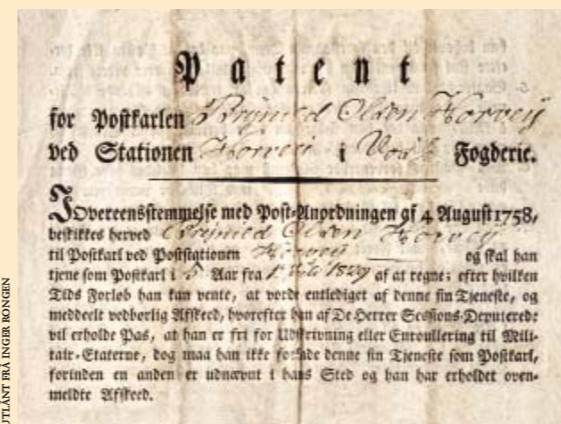 Patent
for Postkarlen Brynild Olsen Horveij
ved Stationen Horvei i Vos Fogderie.
Iovereensstemmelse med Post-Anordningen af 4 August 1758,
beskikkes herved Brynild Olsen Horveij
til Postkarl ved Poststationen Horveij og skal han
tjene som Postkarl i 5 Aar fra 1 Juli 1829 af at regne; efter hvilken
Tids Forløb han kan vente, at vorde entlediget af denne sin Tjeneste, og
meddeelt vedborlig Afskeed, hvorefter han af De Herrer Sessions-Deputerede
vil erholde Pas, at han er fri for Udskrivning eller Enroullering til Mili-
tair-Etaterne, dog maa han ikke forlade denne sin Tjeneste som Postkarl,
forinden en anden er udnævnt i hans Sted og han har erholdet oven-
meldte Afskeed.
UTLÅNT FRÅ INGER RONGEN